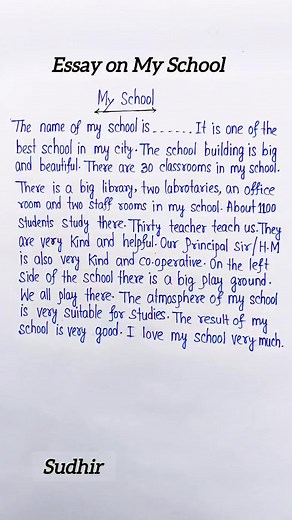 Essay on My School
My School
The name of my school is ...... It is one of the
best school in my city. The school building is big
and beautiful. There are 30 classrooms in my school.
There is a big library, two labrotaries, an office
room and two staff rooms in my school. About 1100
students study there. Thirty teacher teach us. They
are very kind and helpful. Our Principal Sir/H.M
is also very kind and co-operative. On the left
side of the school there is a big play ground.
We all play there. The atmosphere of my school
is very suitable for studies. The result of my
school is very good. I love my school very much.
Sudhir